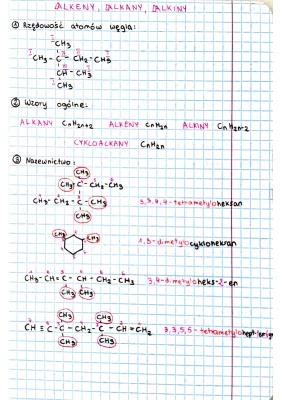 ALKENY, ALKANY, ALKINY
① Rzędowość atomów węgla:
I
CH₃
I IV II I
CH₃-C-CH₂-CH₃
III I
CH-CH₃
CH₃
② Wzory ogólne:
ALKANY CnH2n+2 ALKENY CnH2n ALKINY CnH2n-2
CYKLOALKANY CnH2n
③ Nazewnictwo:
CH₃
CH₃-C-CH₂-CH₃
CH₃-CH₂-C-CH₃ 3,3,4,4-tetrametyloheksan
CH₃
CH₃ CH₃ 1,3-dimetylocykloheksan
CH₃-CH=C-CH-CH₂-CH₃ 3,4-dimetyloheks-2-en
CH₃ CH₃
CH₃ CH₃
CH≡C-C-CH₂-C-CH=CH₂ 3,3,5,5-tetrametylohept
CH₃ CH₃